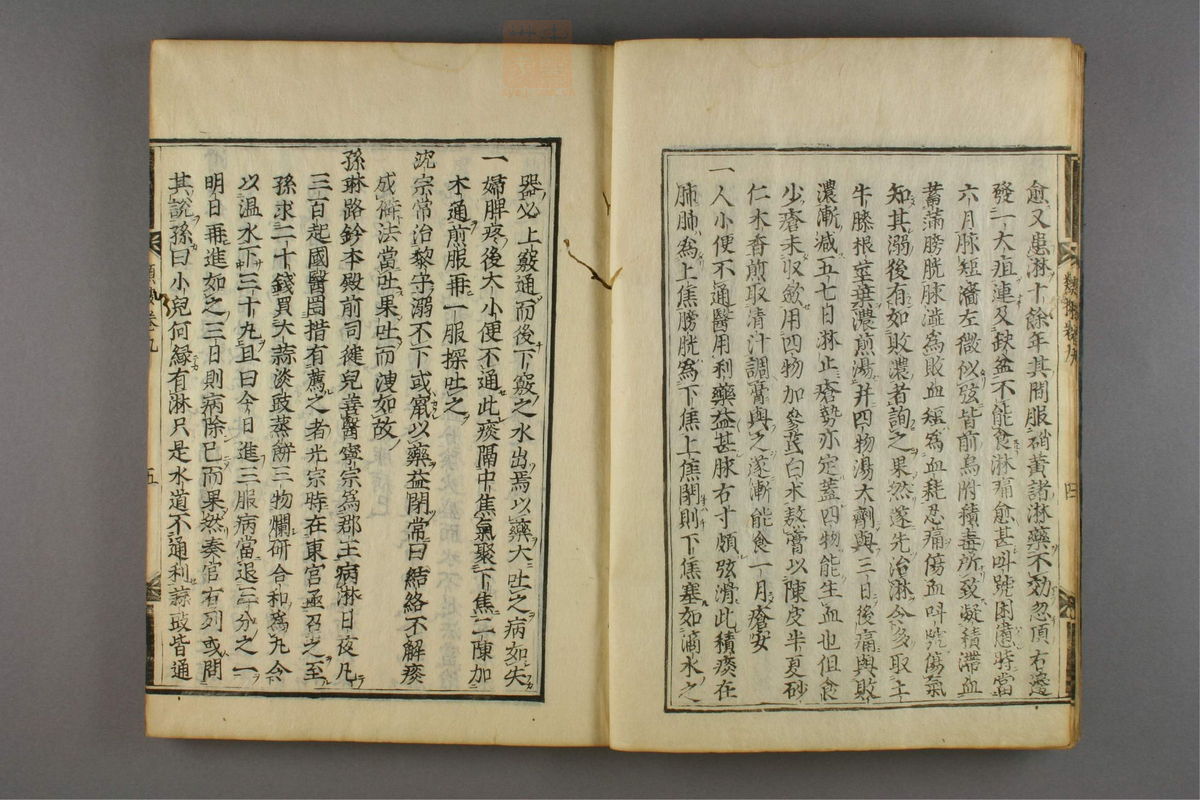 愈又患淋十餘年其間服硝黄諸淋藥不効忽頂右邊
發一大疽連及缺盆不能食淋痛愈甚叫號困憊時當
六月脉短濇左微似弦皆前烏附積毒所致凝積滯血
蓄滿膀胱脉澁為敗血短為血耗忍痛傷血叫號傷氣
知其溺後有如敗濃者詢之果然遂先治淋令多取土
牛膝根莖葉濃煎湯幷四物湯大劑與三日後痛與敗
濃漸减五七日淋止瘡勢亦定蓋四物能生血也但食
少瘡未収歛用四物加參芪白术熬膏以陳皮半夏砂
仁木香煎取清汁調膏與之遂漸能食一月瘡安
一人小便不通醫用利藥益甚脉右寸頗弦滑此積痰在
肺肺為上焦膀胱爲下焦上焦閉則下焦塞如滴水之
類授卷九
四
器必上竅通而後下竅之水出焉以藥大吐之病如失
一婦脾疼後大小便不通此痰隔中焦氣聚下焦二陳加
木通煎服再一服探吐之
沈宗常治黎守溺不下或窮以藥益閉常曰結絡不解痰
成癖法當吐果吐而溲如故
孫琳路鈐本殿前司健兒善醫寧宗爲郡王病淋日夜凡
三百起國醫罔措有薦之者光宗時在東宮亟召之至
孫求二十錢買大蒜淡豉蒸餠三物爛研合和爲丸令
以温水下三十丸且曰今日進三服病當退三分之一
明日再進如之三日則病除已而果然奏官右列或問
其說孫曰小兒何縁有淋只是水道不通利蒜豉皆通
卷九
五